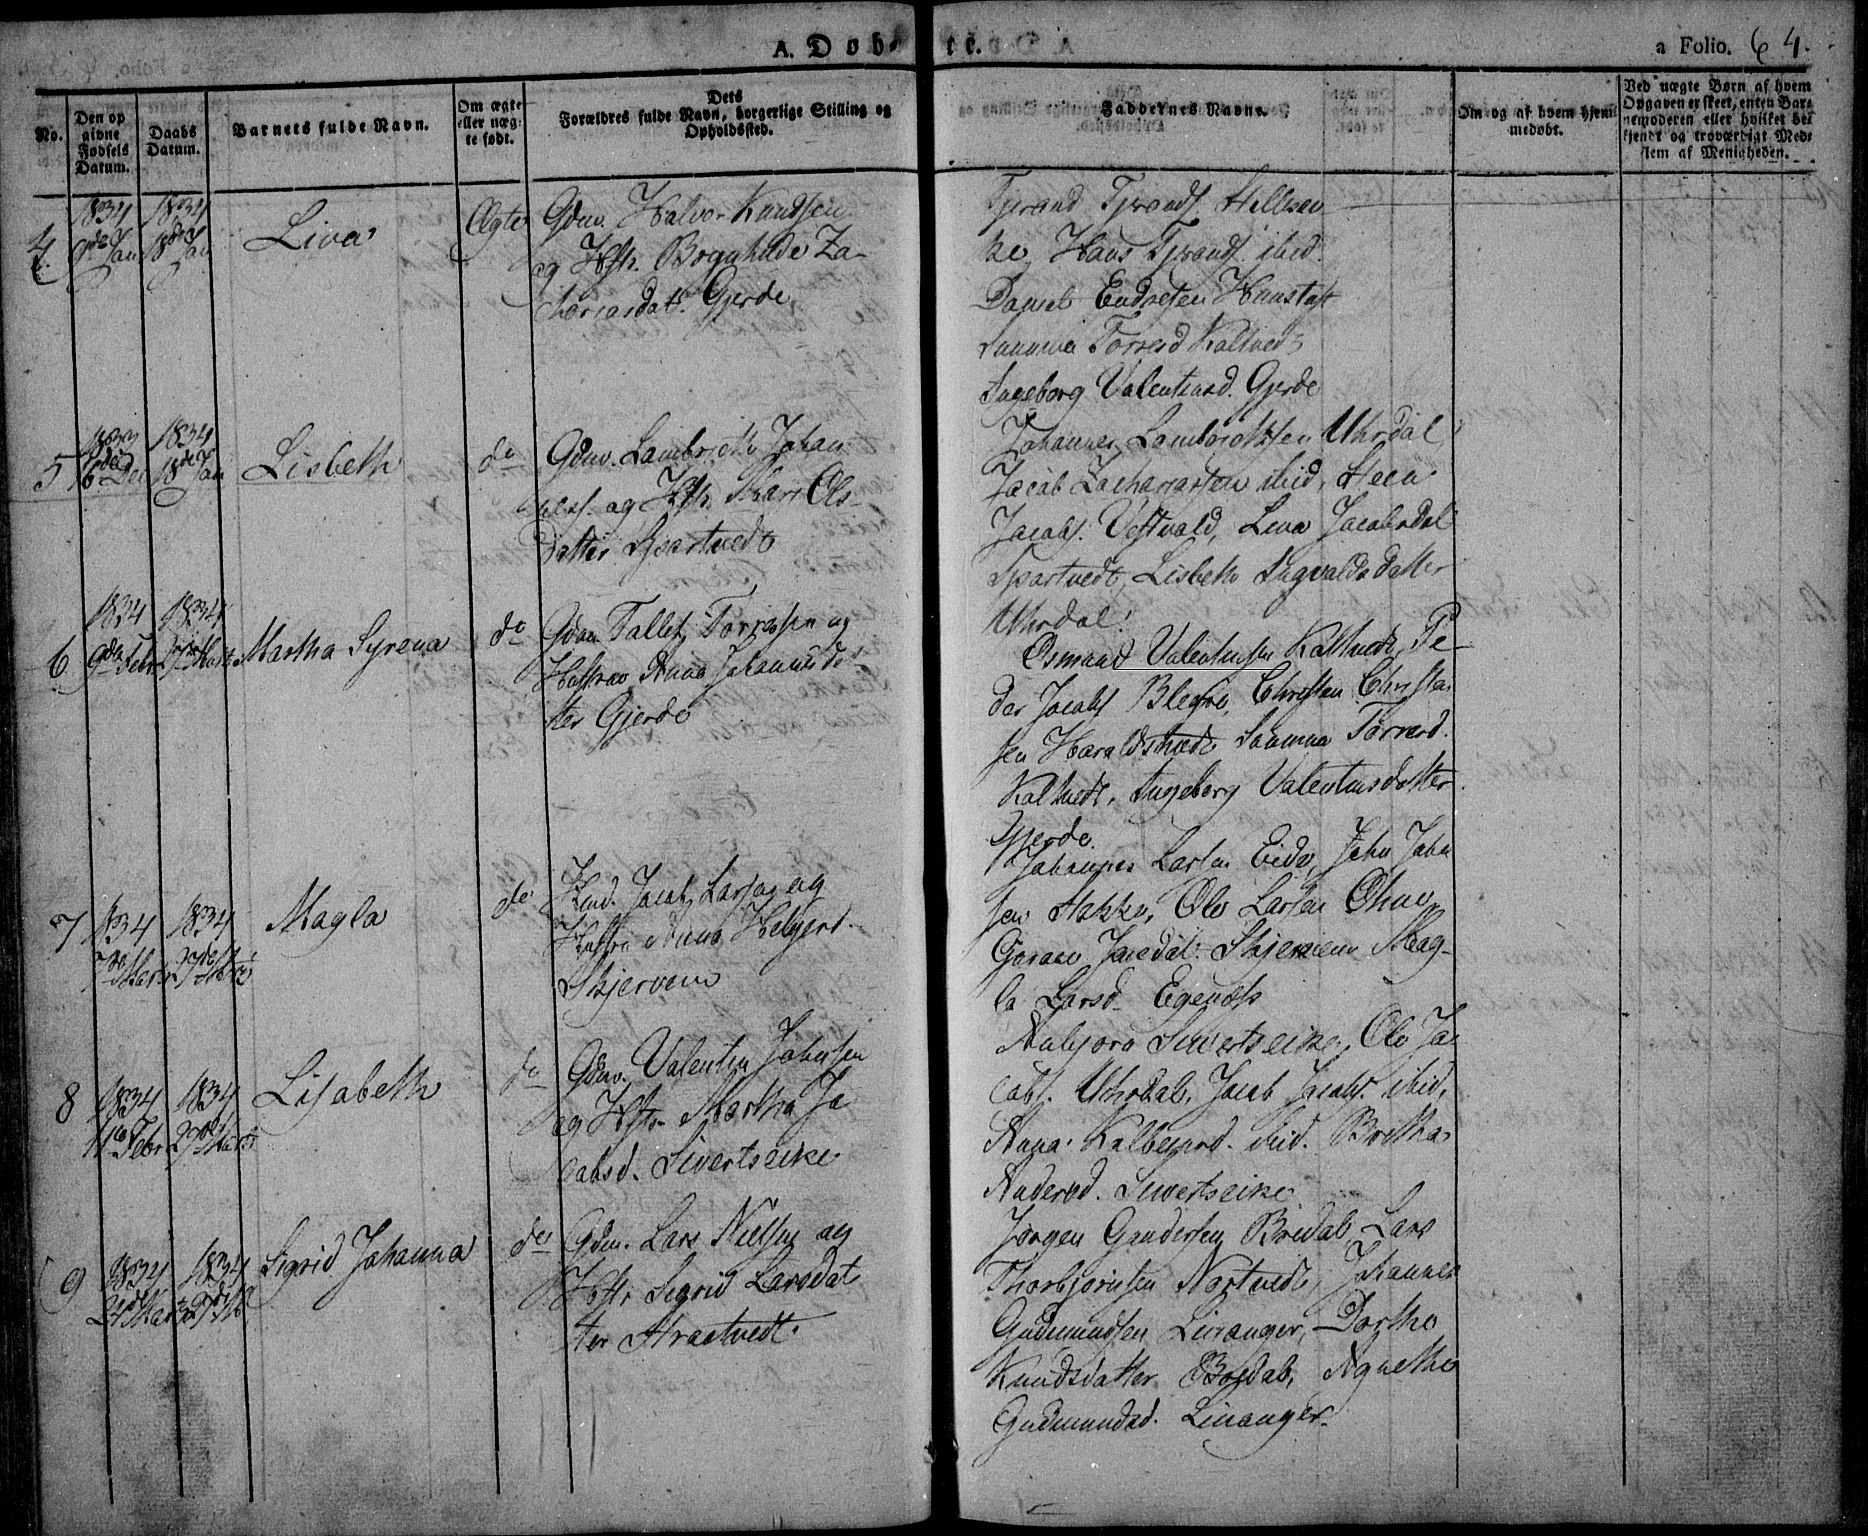 A. Døbte.
a Folio. 64.
No.
Den opgivne Fødsels Datum.
Daabs Datum.
Barnets fulde Navn.
Om ægte eller uægte født.
Dets Forældres fulde Navn, borgerlige Stilling og Opholdssted.
Faddernes Navne.
Om og af hvem hjemmedøbt.
Ved uægte Børn af hvem Opgaven er skeet, enten Barnemoderen eller hvilket bekjendt og troværdigt Medlem af Menigheden.
4.
1834
9de Jan
1834
18de Jan
Liva
Ægte
Gdm. Halvor Knudsen
og Hstr. Bragnhilde Za-
chariasdat. Gjerde
Tjerand Tjerands
Hans Tjerands. ibid.
Daniel Endresen
Sunniva Torresd Kaltvedt
Ingeborg Valentinsd. Gjerde
5
1833
16de Dec
1834
18de Jan
Lisbeth
do
Gdm. Lambrecth Johan-
ness. og Hstr. Mari Ols-
datter Spartvedt
Johannes Lambrechtsen Uhrdal
Jacob Zachariassen ibid,
Jacobs. Vestvold, Liva Jacobsdat
Spartvedt, Lisbeth Sygvaldsdatter
Uhrdal.
6
1834
9de Febr
1834
27de Marts
Martha Syrena
do
Gdm Tallef Torressen og
Hustrue Anna Johannesdat-
ter Gjerde
Osmund Valentinsen Kaltvedt, Pe-
der Jacobs Blegie, Christen Christen-
sen Haraldstvedt Sunniva Torresd.
Kaltvedt, Ingeborg Valentinsdatter
Gjerde.
7
1834
7de Marts
1834
27de Marts
Magla
do
Jacob Larsen og
Hustr. Anna Helgesd.
Skjervem
Johannes Larsen Eide, John John-
sen Stakke, Ole Larsen
Skjervem Mag-
la Larsd.
8
1834
11te Febr
1834
27de Marts
Lisabeth
do
Gdm. Valentin Johnsen
og Hstr. Martha Ja-
cobsd. Sivertseike
Anbjørn Sivertseike, Ole Ja-
cobs. Uhrdal, Jacob Jacobs. ibid,
Anna Kolbensd. ibid. Bretha
Andersd. Sivertseike
9
1834
21de Marts
1834
27de M.
Sigrid Johanna
do
Gdm. Lars Nielsen og
Hstr. Sigrid Larsdat-
ter Straatvedt.
Jørgen Gundersen Bredal, Lars
Thorbjørnsen Nortvedt, Johannes
Gudmundsen Liranger, Dorthe
Knudsdatter Bredal, Agnethe
Gudmundsd. Liranger.